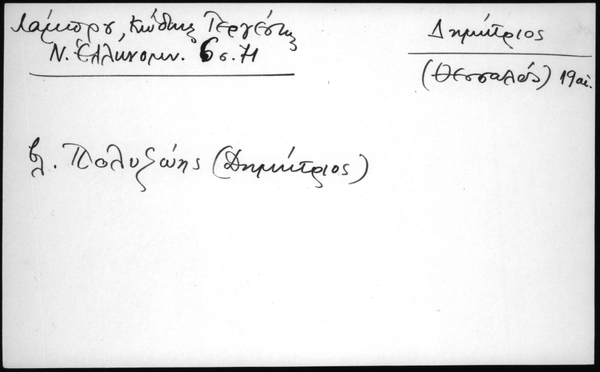 Λάμπρου, Κώδικ. Τεργέστης
Ν. Ἑλληνομν. 6 σ. 71
Δημήτριος
(Θεσσαλός) 19 αἰ.
βλ. Πολυζώης (Δημήτριος)